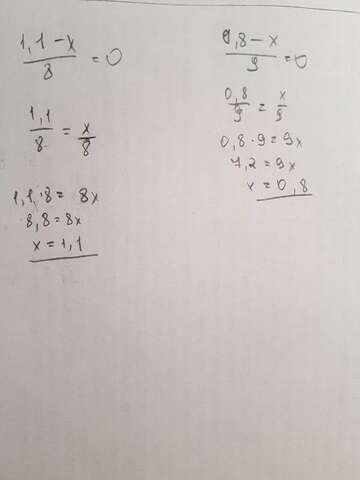 (1,1 - x)/8 = 0
1,1/8 = x/8
1,1 · 8 = 8x
8,8 = 8x
x = 1,1
(0,8 - x)/9 = 0
0,8/9 = x/9
0,8 · 9 = 9x
7,2 = 9x
x = 0,8